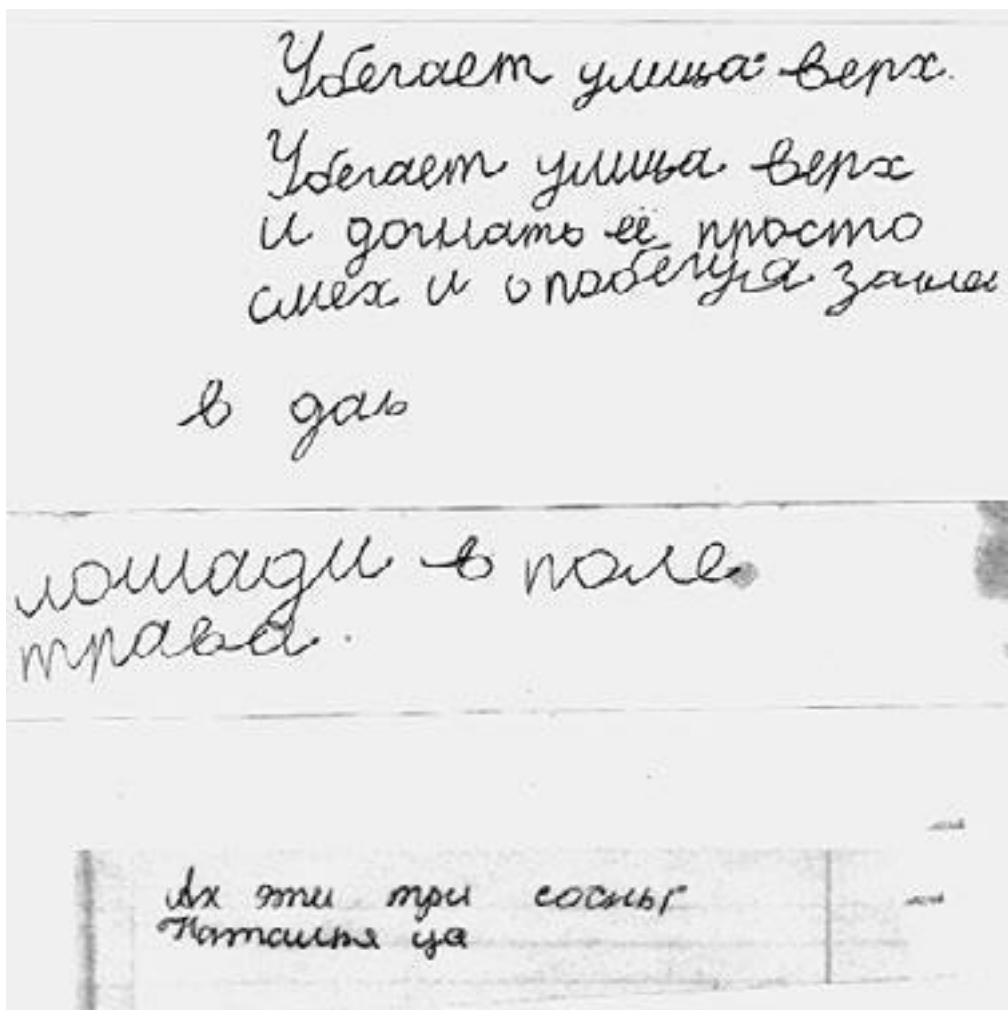 Убегает улица верх.
Убегает улица верх
и догнать её просто
смех и
в даь
лошади в поле
трава.
Ах эти три сосны